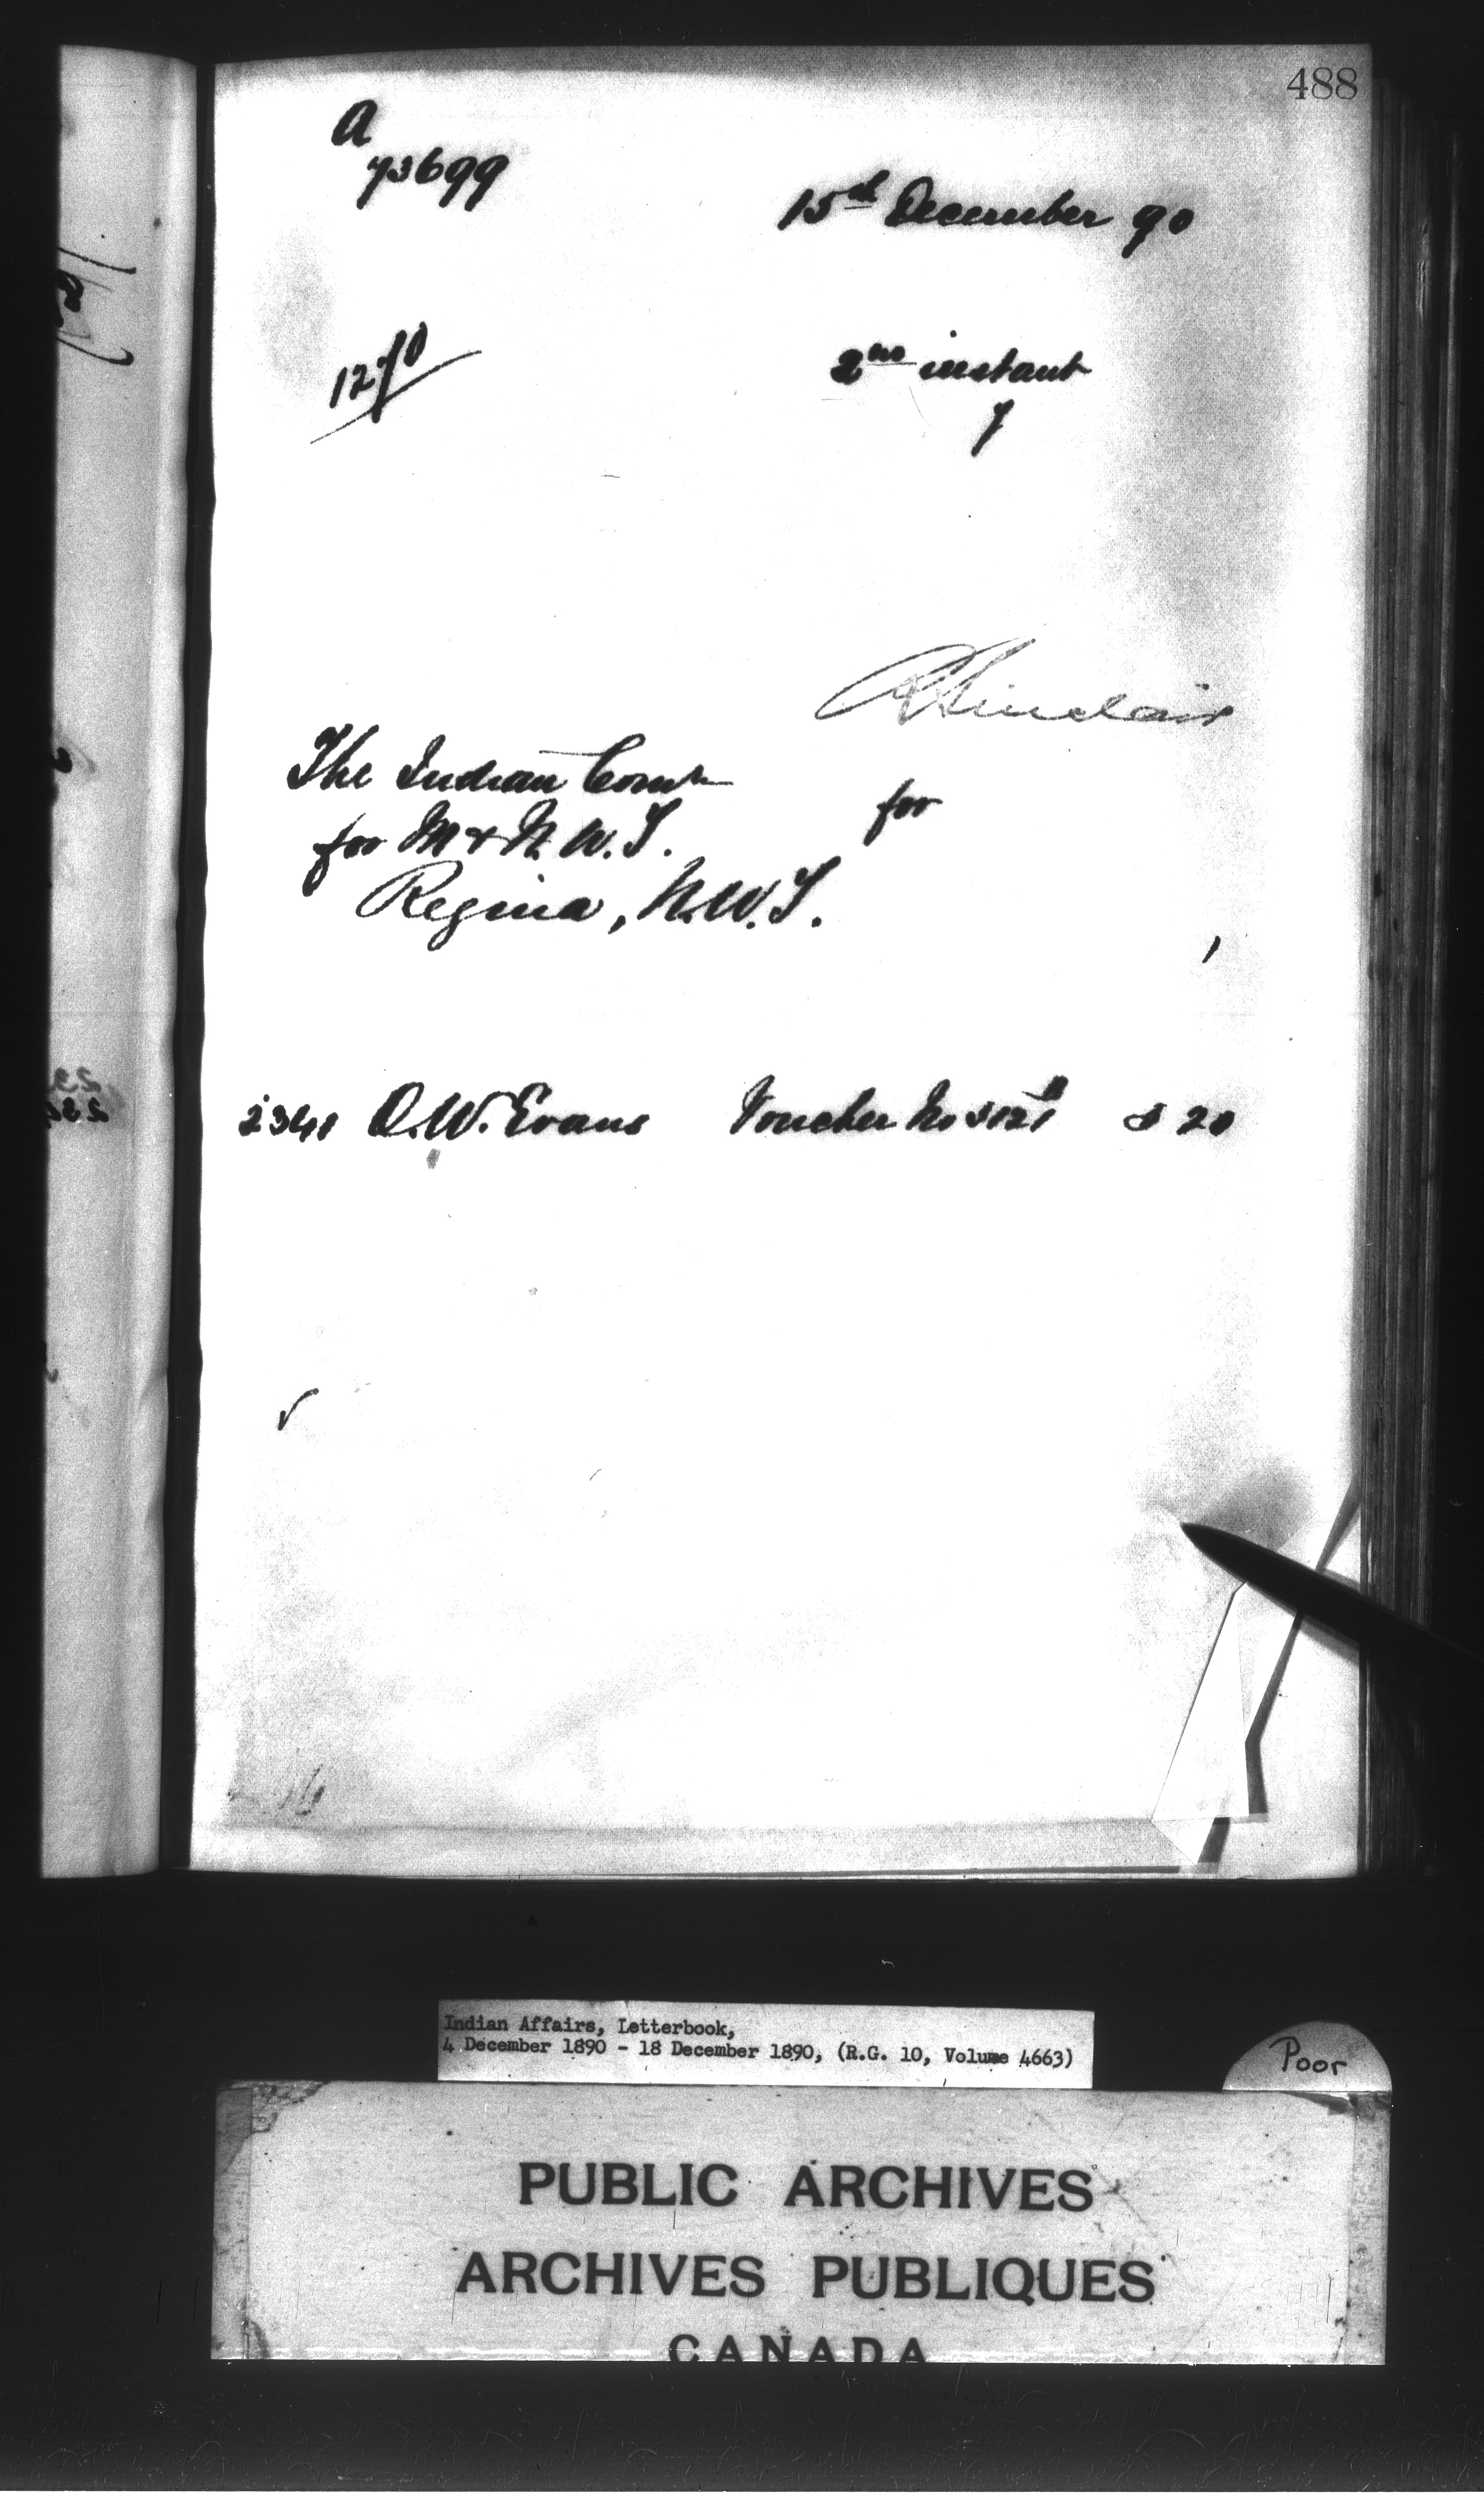 488
A
73699
15th December 90
1270
2nd instant
7
R Sinclair
The Indian Comr
for M & N. W. T.
for
Regina, N.W.T.
2341 O.W. Evans Voucher No $ 20
Indian Affairs, Letterbook,
4 December 1890 - 18 December 1890, (R.G. 10, Volume 4663)
Poor
PUBLIC ARCHIVES
ARCHIVES PUBLIQUES
CANADA